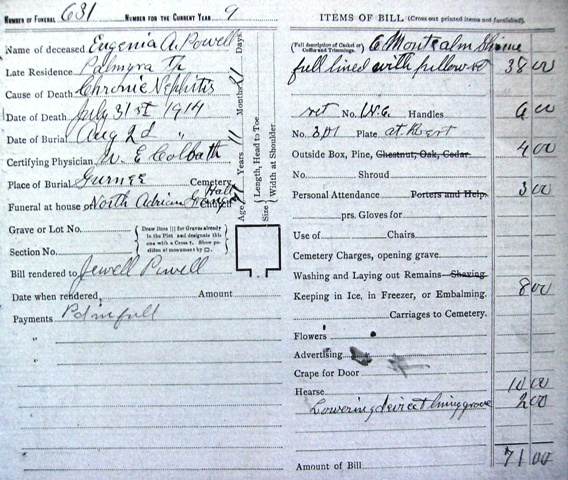 NUMBER OF FUNERAL 631 NUMBER FOR THE CURRENT YEAR 9
Name of deceased Eugenia A. Powell
Late Residence Palmyra Tp
Cause of Death Chronic Nephitis
Date of Death July 31st 1914
Date of Burial Aug 2d "
Certifying Physician W. E Colbath
Place of Burial Cemetery
Funeral at house or North Adrian Church
Hall
Age Years Months Days
Size { Length, Head to Toe
Width at Shoulder
Grave or Lot No.
Section No.
{ Draw lines ||| for Graves already in the Plot and designate this one with a Cross †. Show position of monument by □. }
Bill rendered to Jewell Powell
Date when rendered Amount
Payments Pd in full
"
"
ITEMS OF BILL (Cross out printed items not furnished).
(Full description of Casket or Coffin and Trimmings.) Montcalm
full lined with pillow 38 00
set No. Handles 6 00
No. Plate at Rest
Outside Box, Pine, Chestnut, Oak, Cedar 4 00
No. Shroud
Personal Attendance Porters and Help 3 00
prs. Gloves for
Use of Chairs
Cemetery Charges, opening grave
Washing and Laying out Remains Shaving
Keeping in Ice, in Freezer, or Embalming. 8 00
Carriages to Cemetery.
Flowers
Advertising
Crape for Door
Hearse 10 00
Lowering device & lining grave 2 00
Amount of Bill 71 00